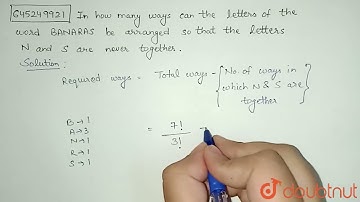 645249921 In how many ways can the letters of the
word BANARAS be arranged so that the letters
N and S are never together.
Solution:
Required ways = Total ways - { No. of ways in
which N & S are
together }
B → 1
A → 3
N → 1
R → 1
S → 1
= 7! / 3! -
doubtnut